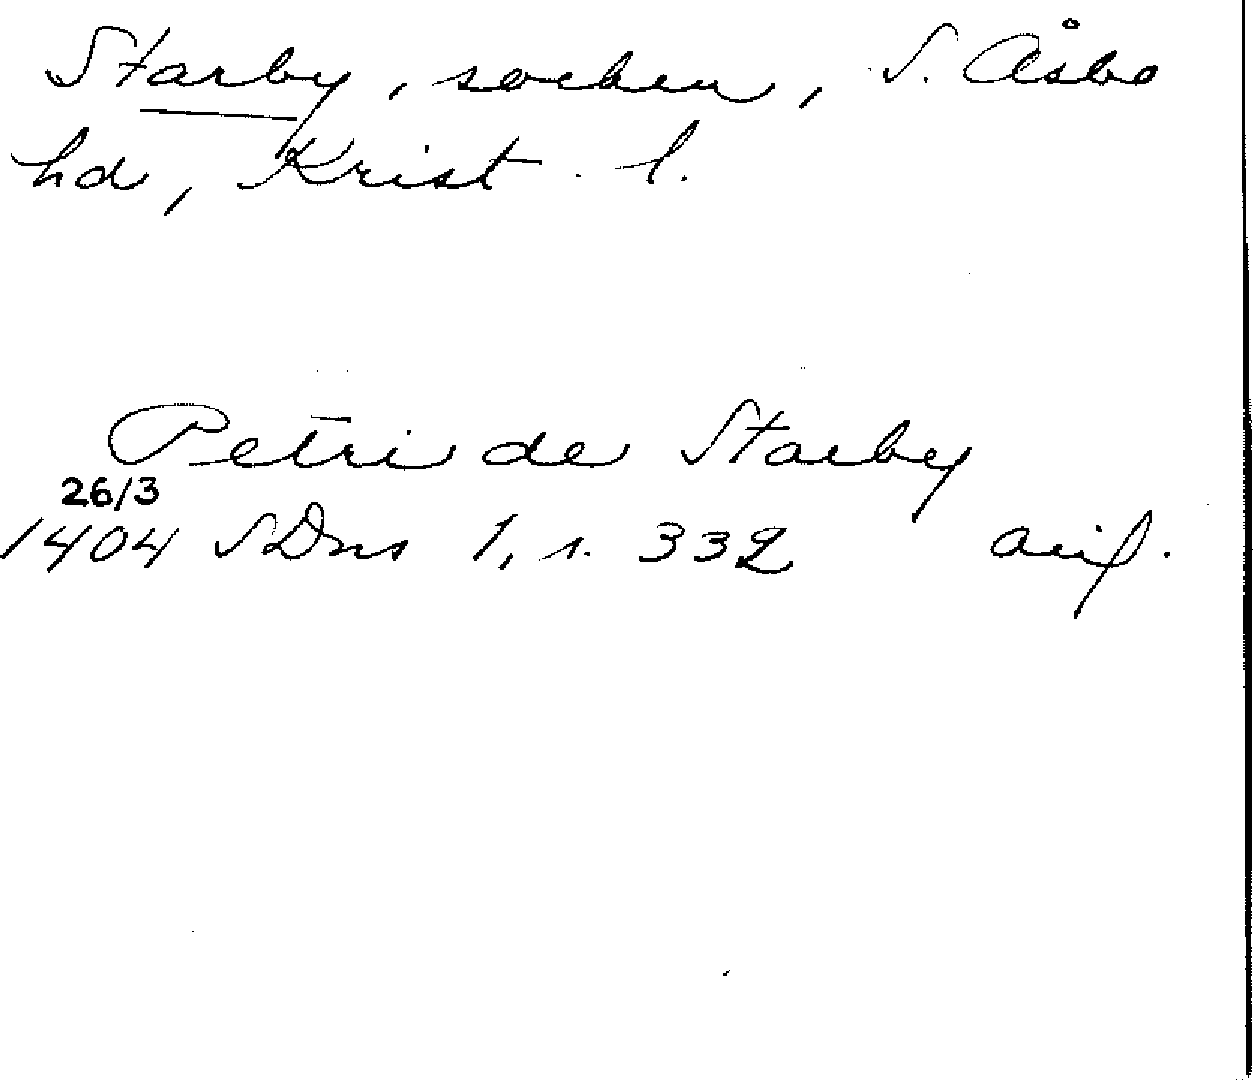 Starby, socken, S. Åsbo
hd, Krist. l.
Petri de Starby
26/3
1404 SDns 1, s. 332 avsk.